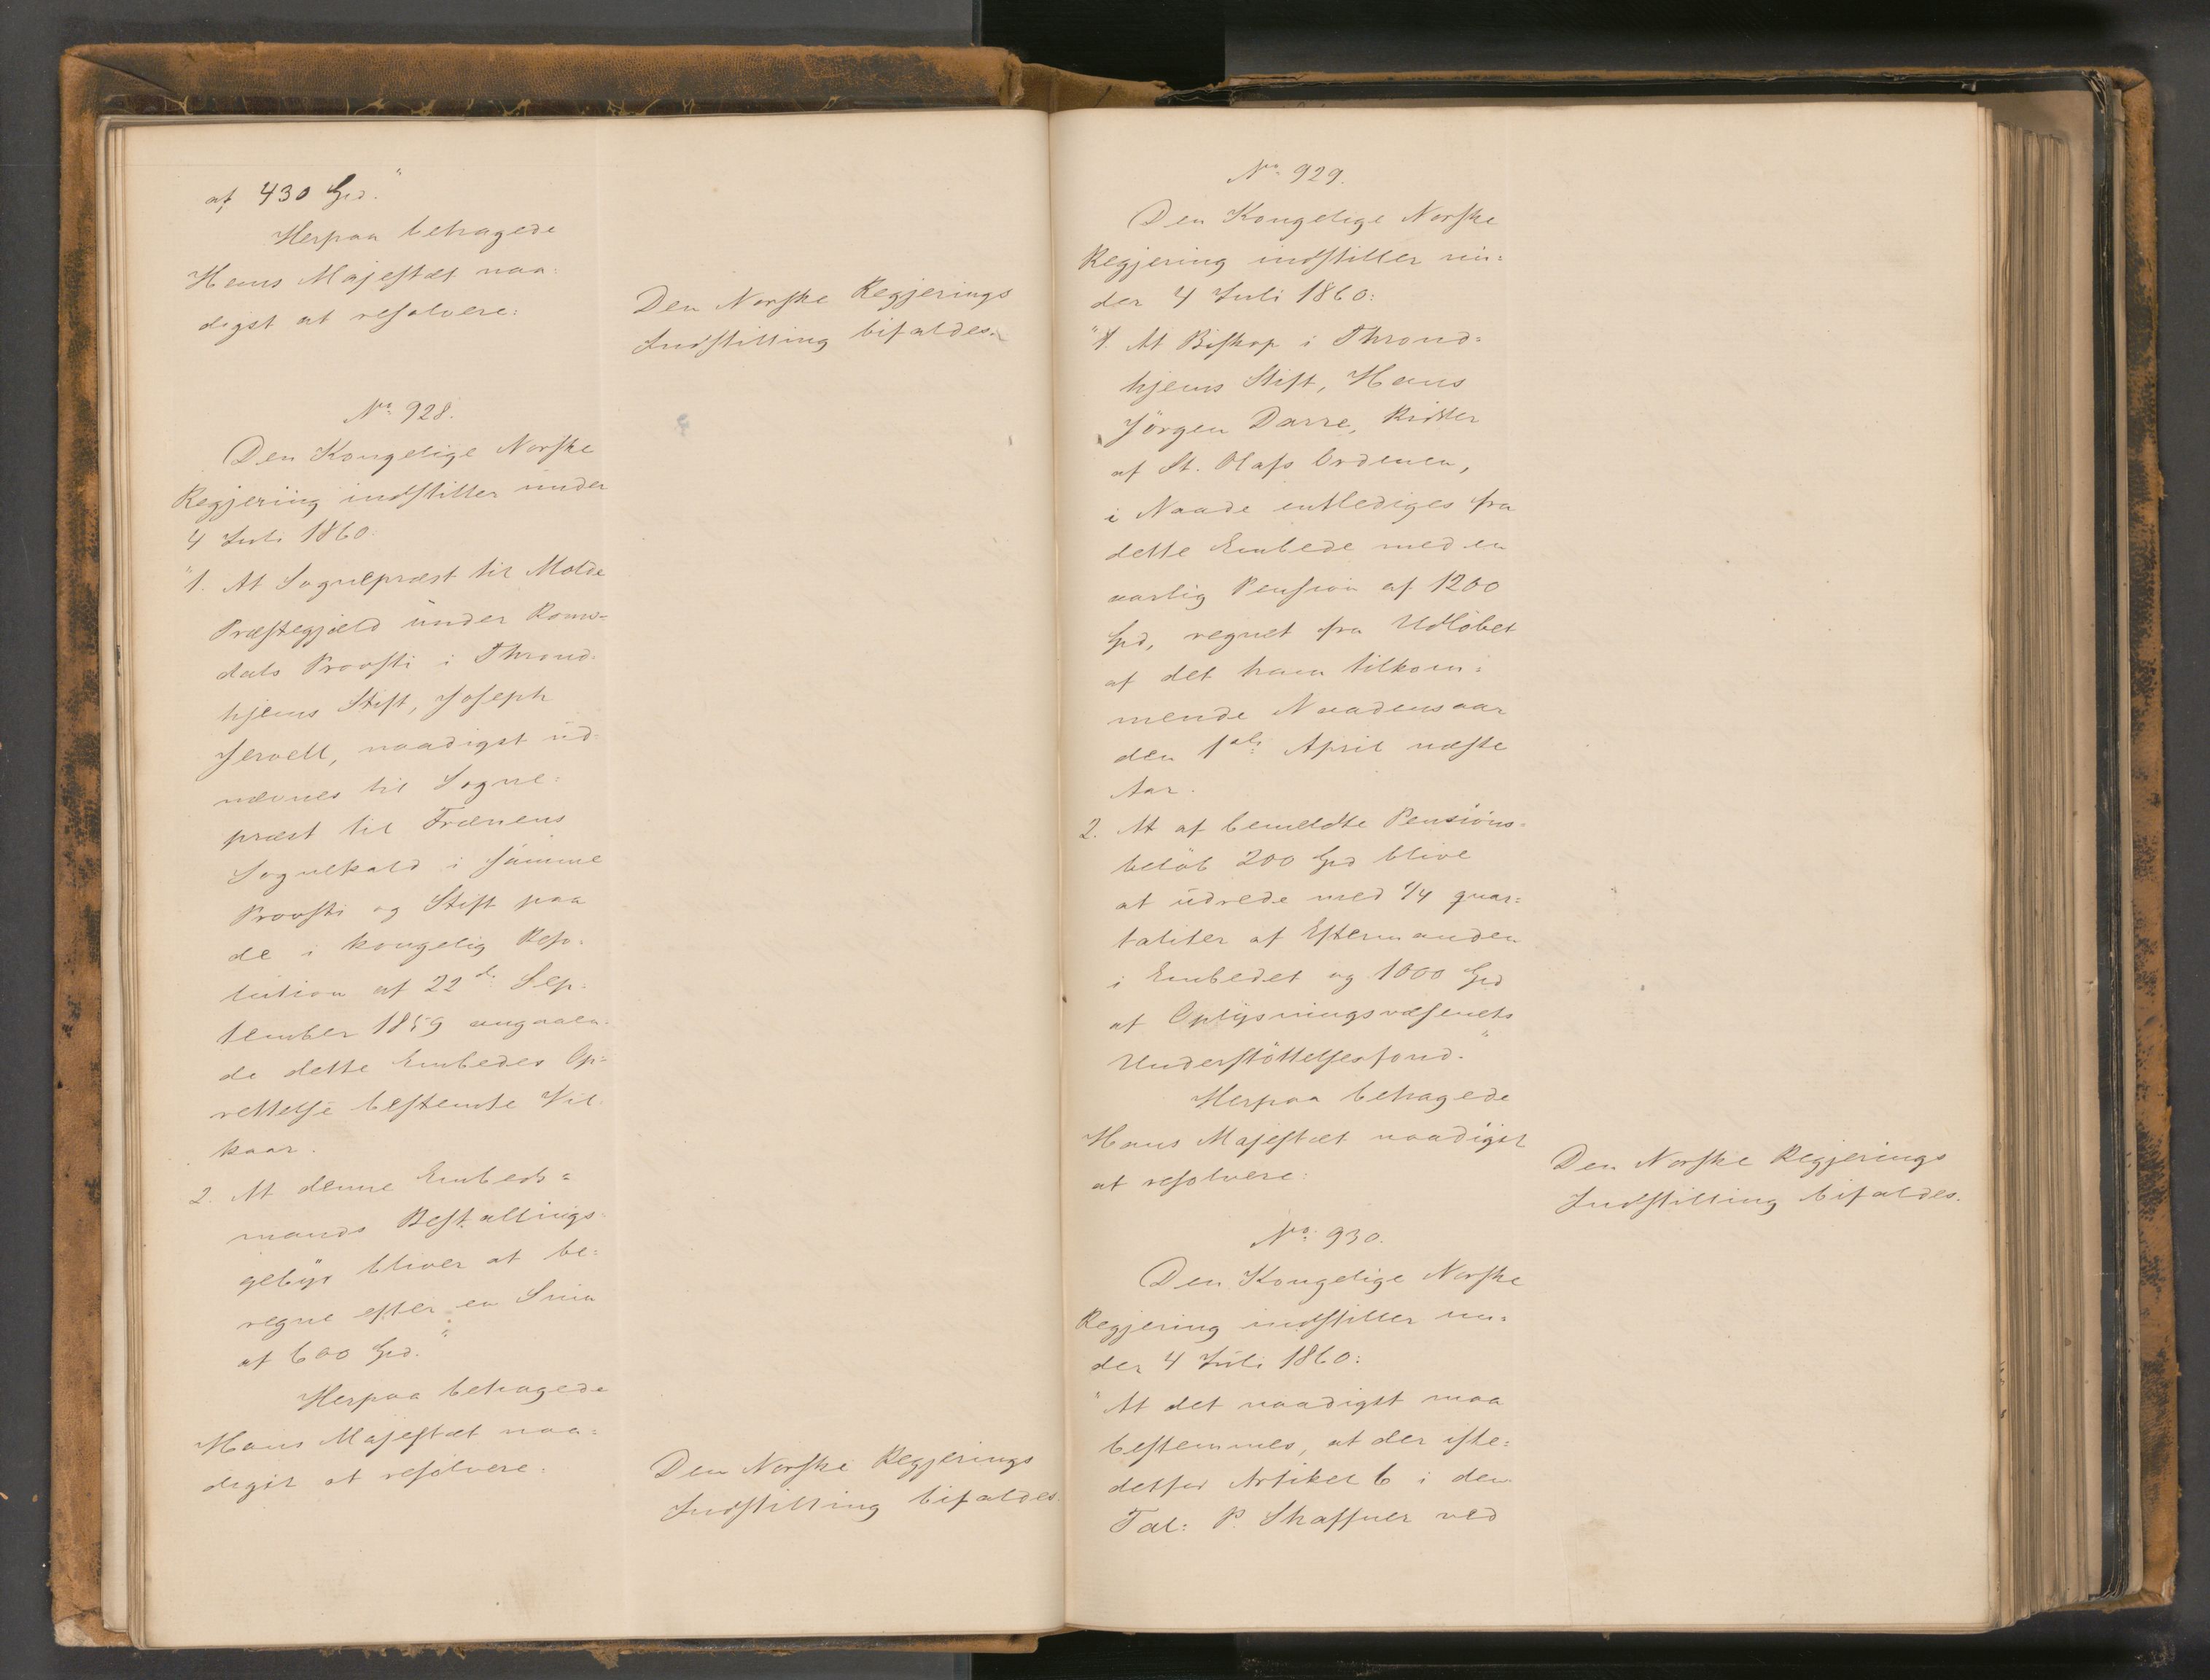 af 430 Spd."
Herpaa behagede
Hans Majestæt naa=
digst at resolvere:
Den Norske Regjerings
Indstilling bifaldes.
No 928.
Den Kongelige Norske
Regjering indstiller under
4 Juli 1860
"1. At Sognepræst til Molde
Præstegjæld under Roms=
dals Provsti i Thrond=
hjems Stift, Joseph
Jervell, naadigst ud=
nævnes til Sogne=
præst til Frænens
Sognekald i samme
Provsti og Stift paa
de i kongelig Reso=
lution af 22d: Sep=
tember 1859 angaaen=
de dette Embedes Op=
rettelse bestemte Vil=
kaar.
2. At denne Embeds=
mands Bestallings=
gebyr bliver at be=
regne efter en Sum
af 600 Spd."
Herpaa behagede
Hans Majestæt naa=
digst at resolvere:
Den Norske Regjerings
Indstilling bifaldes.
No 929.
Den Kongelige Norske
Regjering indstiller un=
der 4 Juli 1860:
"1. At Biskop i Thrond=
hjems Stift, Hans
Jörgen Darre, Ridder
af St. Olafs Ordenen,
i Naade entlediges fra
dette Embede med en
aarlig Pension af 1200
Spd, regnet fra Udløbet
af det ham tilkom=
mende Naadensaar
den 1ste April næste
Aar.
2. At af bemeldte Pensions=
beløb 200 Spd blive
at udrede med 1/4 quar=
taliter af Eftermanden
i Embedet og 1000 Spd
af Oplysningsvæsenets
Understöttelsesfond."
Herpaa behagede
Hans Majestæt naadigst
at resolvere:
Den Norske Regjerings
Indstilling bifaldes.
No 930.
Den Kongelige Norske
Regjering indstiller un=
der 4 Juli 1860:
"At det naadigst maa
bestemmes, at der iste=
detfor Artikel 6 i den
Tal: P. Shaffner ved